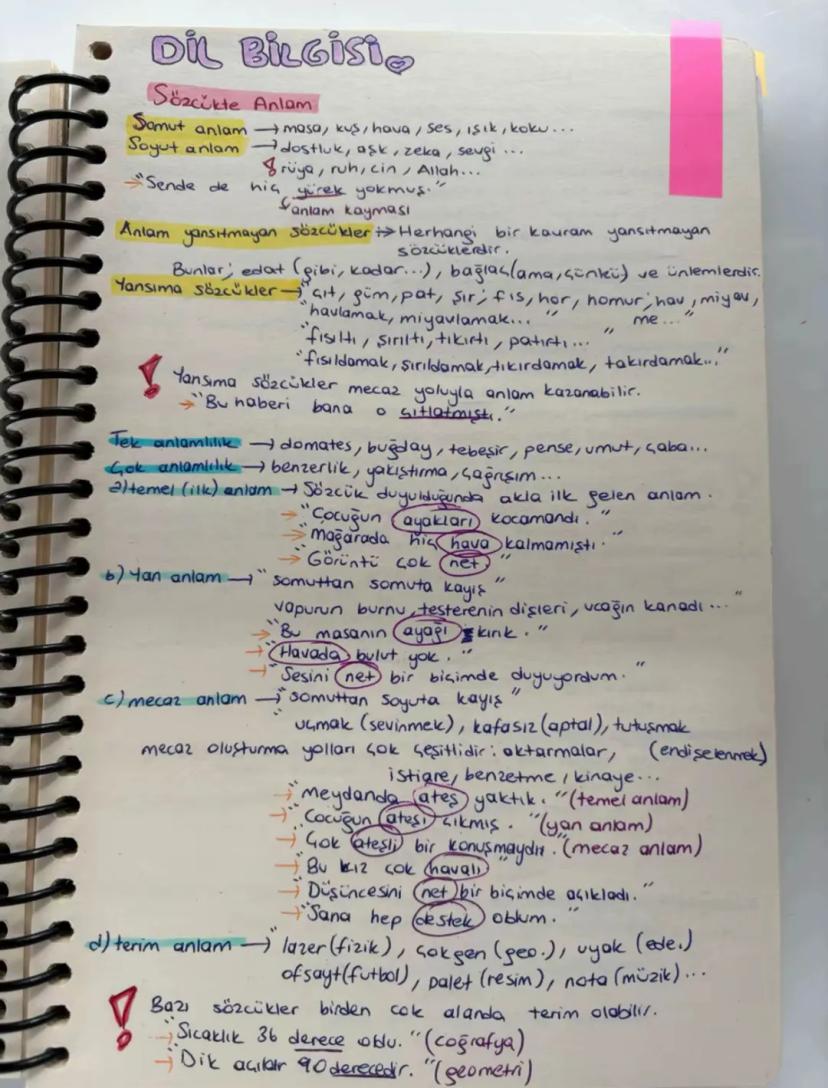 DİL BİLGİSİ
Sözcükte Anlam
Somut anlam → masa, kuş, hava, ses, ışık, koku...
Soyut anlam → dostluk, aşk, zeka, sevgi ...
rüya, ruh, cin, Allah...
→ "Sende de hiç yürek yokmuş."
anlam kayması
Anlam yansıtmayan sözcükler → Herhangi bir kavram yansıtmayan
sözcüklerdir.
Bunlar; edat (gibi, kadar...), bağlaç(ama, çünkü) ve ünlemlerdir.
Yansıma sözcükler → "çıt, güm, pat, şır, fıs, hor, homur, hav, miyav,
"havlamak, miyavlamak... " me..."
"fısıltı, şırıltı, tıkırtı, patırtı... "
"fısıldamak, şırıldamak, tıkırdamak, takırdamak..."
! Yansıma sözcükler mecaz yoluyla anlam kazanabilir.
→ "Bu haberi bana o çıtlatmıştı."
Tek anlamlılık → domates, buğday, tebeşir, pense, umut, çaba...
Çok anlamlılık → benzerlik, yakıştırma, çağrışım...
a) temel (ilk) anlam → Sözcük duyulduğunda akla ilk gelen anlam.
→ "Çocuğun ayakları kocamandı."
→ "Mağarada hiç hava kalmamıştı."
→ "Görüntü çok net"
b) Yan anlam → "somuttan somuta kayış"
vapurun burnu, testerenin dişleri, uçağın kanadı ... "
→ "Bu masanın ayağı kırık."
→ "Havada bulut yok."
→ "Sesini net bir biçimde duyuyordum."
c) mecaz anlam → "somuttan soyuta kayış"
"uçmak (sevinmek), kafasız (aptal), tutuşmak
mecaz oluşturma yolları çok çeşitlidir: aktarmalar, (endişelenmek)
istiare, benzetme, kinaye...
→ "Meydanda ateş yaktık." (temel anlam)
→ "Çocuğun ateşi çıkmış. "(yan anlam)
→ "Çok ateşli bir konuşmaydı." (mecaz anlam)
→ "Bu kız çok havalı"
→ "Düşüncesini net bir biçimde açıkladı."
→ "Sana hep destek oldum."
d) terim anlam → "lazer (fizik), çokgen (geo.), uyak (ede.)
ofsayt(futbol), palet (resim), nota (müzik)...
! Bazı sözcükler birden çok alanda terim olabilir.
→ "Sıcaklık 36 derece oldu." (coğrafya)
→ "Dik açılar 90 derecedir." (geometri)